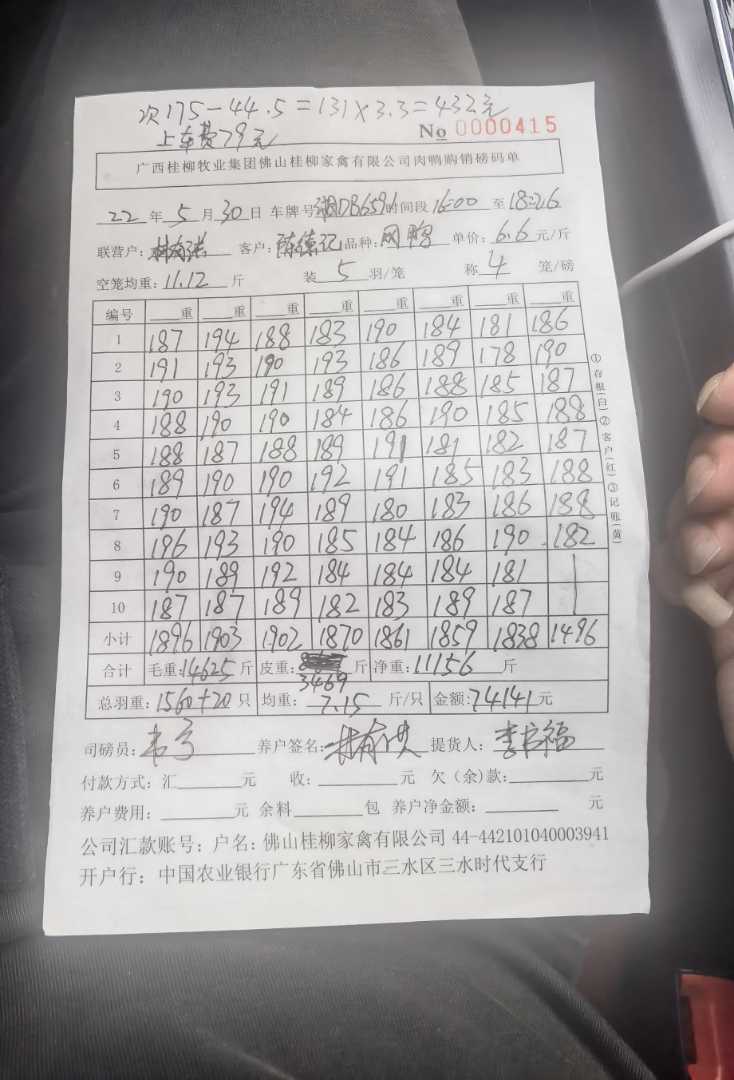 次175-44.5=131×3.3=432元
上车费79元
No 0000415
广西桂柳牧业集团佛山桂柳家禽有限公司肉鸭购销磅码单
22年5月30日 车牌号湘DB6591时间段16:00至18:26
联营户: 客户:陈德记 品种:网鸭 单价:6.6元/斤
空笼均重:11.12斤 装5羽/笼 称4笼/磅
编号 重 重 重 重 重 重 重 重
1 187 194 188 183 190 184 181 186
2 191 193 190 193 186 189 178 190
3 190 193 191 189 186 188 185 187
4 188 190 190 184 186 190 185 188
5 188 187 188 189 191 181 182 187
6 189 190 190 192 191 185 183 188
7 190 187 194 189 180 183 186 188
8 196 193 190 185 184 186 190 182
9 190 189 192 184 184 184 181
10 187 187 189 182 183 189 187
小计 1896 1903 1902 1870 1861 1859 1838 1496
合计 毛重:14625斤 皮重: 斤 净重:11156斤
3469
总羽重:1560+20只 均重:7.15斤/只 金额:74141元
司磅员: 养户签名:林有洪 提货人:李启福
付款方式:汇 元 收: 元 欠(余)款: 元
养户费用: 元 余料 包 养户净金额: 元
公司汇款账号:户名:佛山桂柳家禽有限公司 44-442101040003941
开户行:中国农业银行广东省佛山市三水区三水时代支行
①存根(白)②客户(红)③记账(黄)